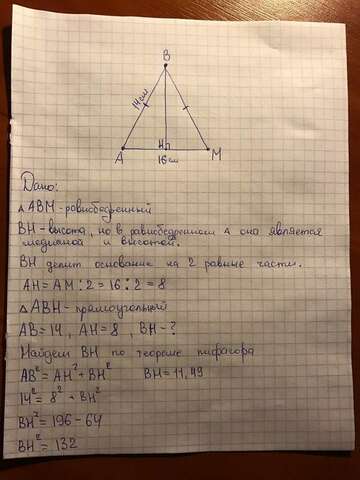 B
14см
H
A
16см
M
Дано:
△ ABM - равнобедренный
BH - высота, но в равнобедренном △ она является
медианой и высотой.
BH делит основание на 2 равные части.
AH = AM : 2 = 16 : 2 = 8
△ ABH - прямоугольный
AB = 14, AH = 8, BH - ?
Найдем BH по теореме пифагора
AB² = AH² + BH² BH = 11,49
14² = 8² + BH²
BH² = 196 - 64
BH² = 132